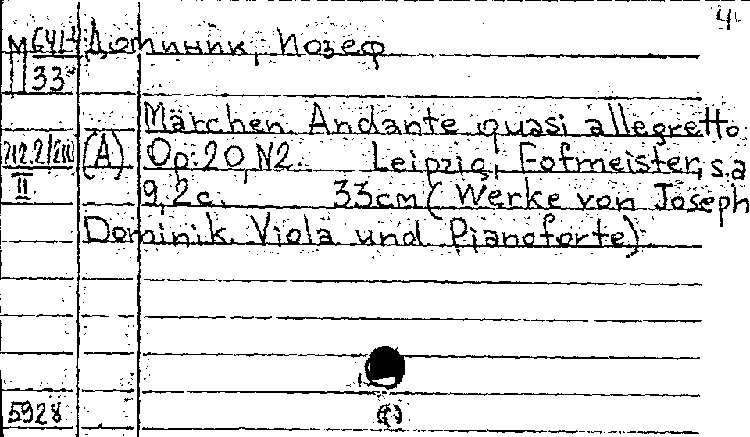 4
М 641-4 Доминик, Иозеф
II 33
Märchen. Andante quasi allegretto.
(A) Op.20, N2. Leipzig, Fofmeister, s.a
II 9, 2c. 33cm (Werke von Joseph
Dominik. Viola und Pianoforte)
5928